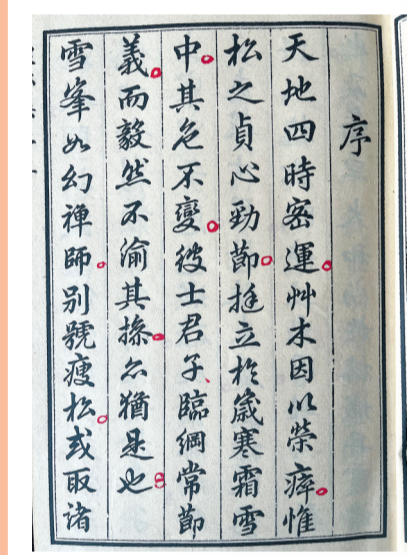 序
天地四時密運艸木因以榮瘁惟
松之貞心勁節挺立於歲寒霜雪
中其色不變彼士君子臨綱常節
義而毅然不渝其操亦猶是也
雪峯如幻禪師別號瘦松或取諸